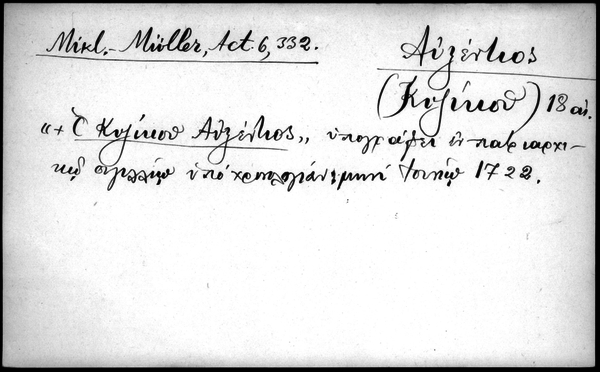 Mikl.-Müller, Act. 6, 332.
Αὐξέντιος
(Κυζίκου) 18 αἰ.
"+ Ὁ Κυζίκου Αὐξέντιος„ ὑπογράφει ἐν πατριαρχι-
κῷ σιγιλλίῳ ὑπὸ χρονολογίαν: μηνὶ Ἰουνίῳ 1722.